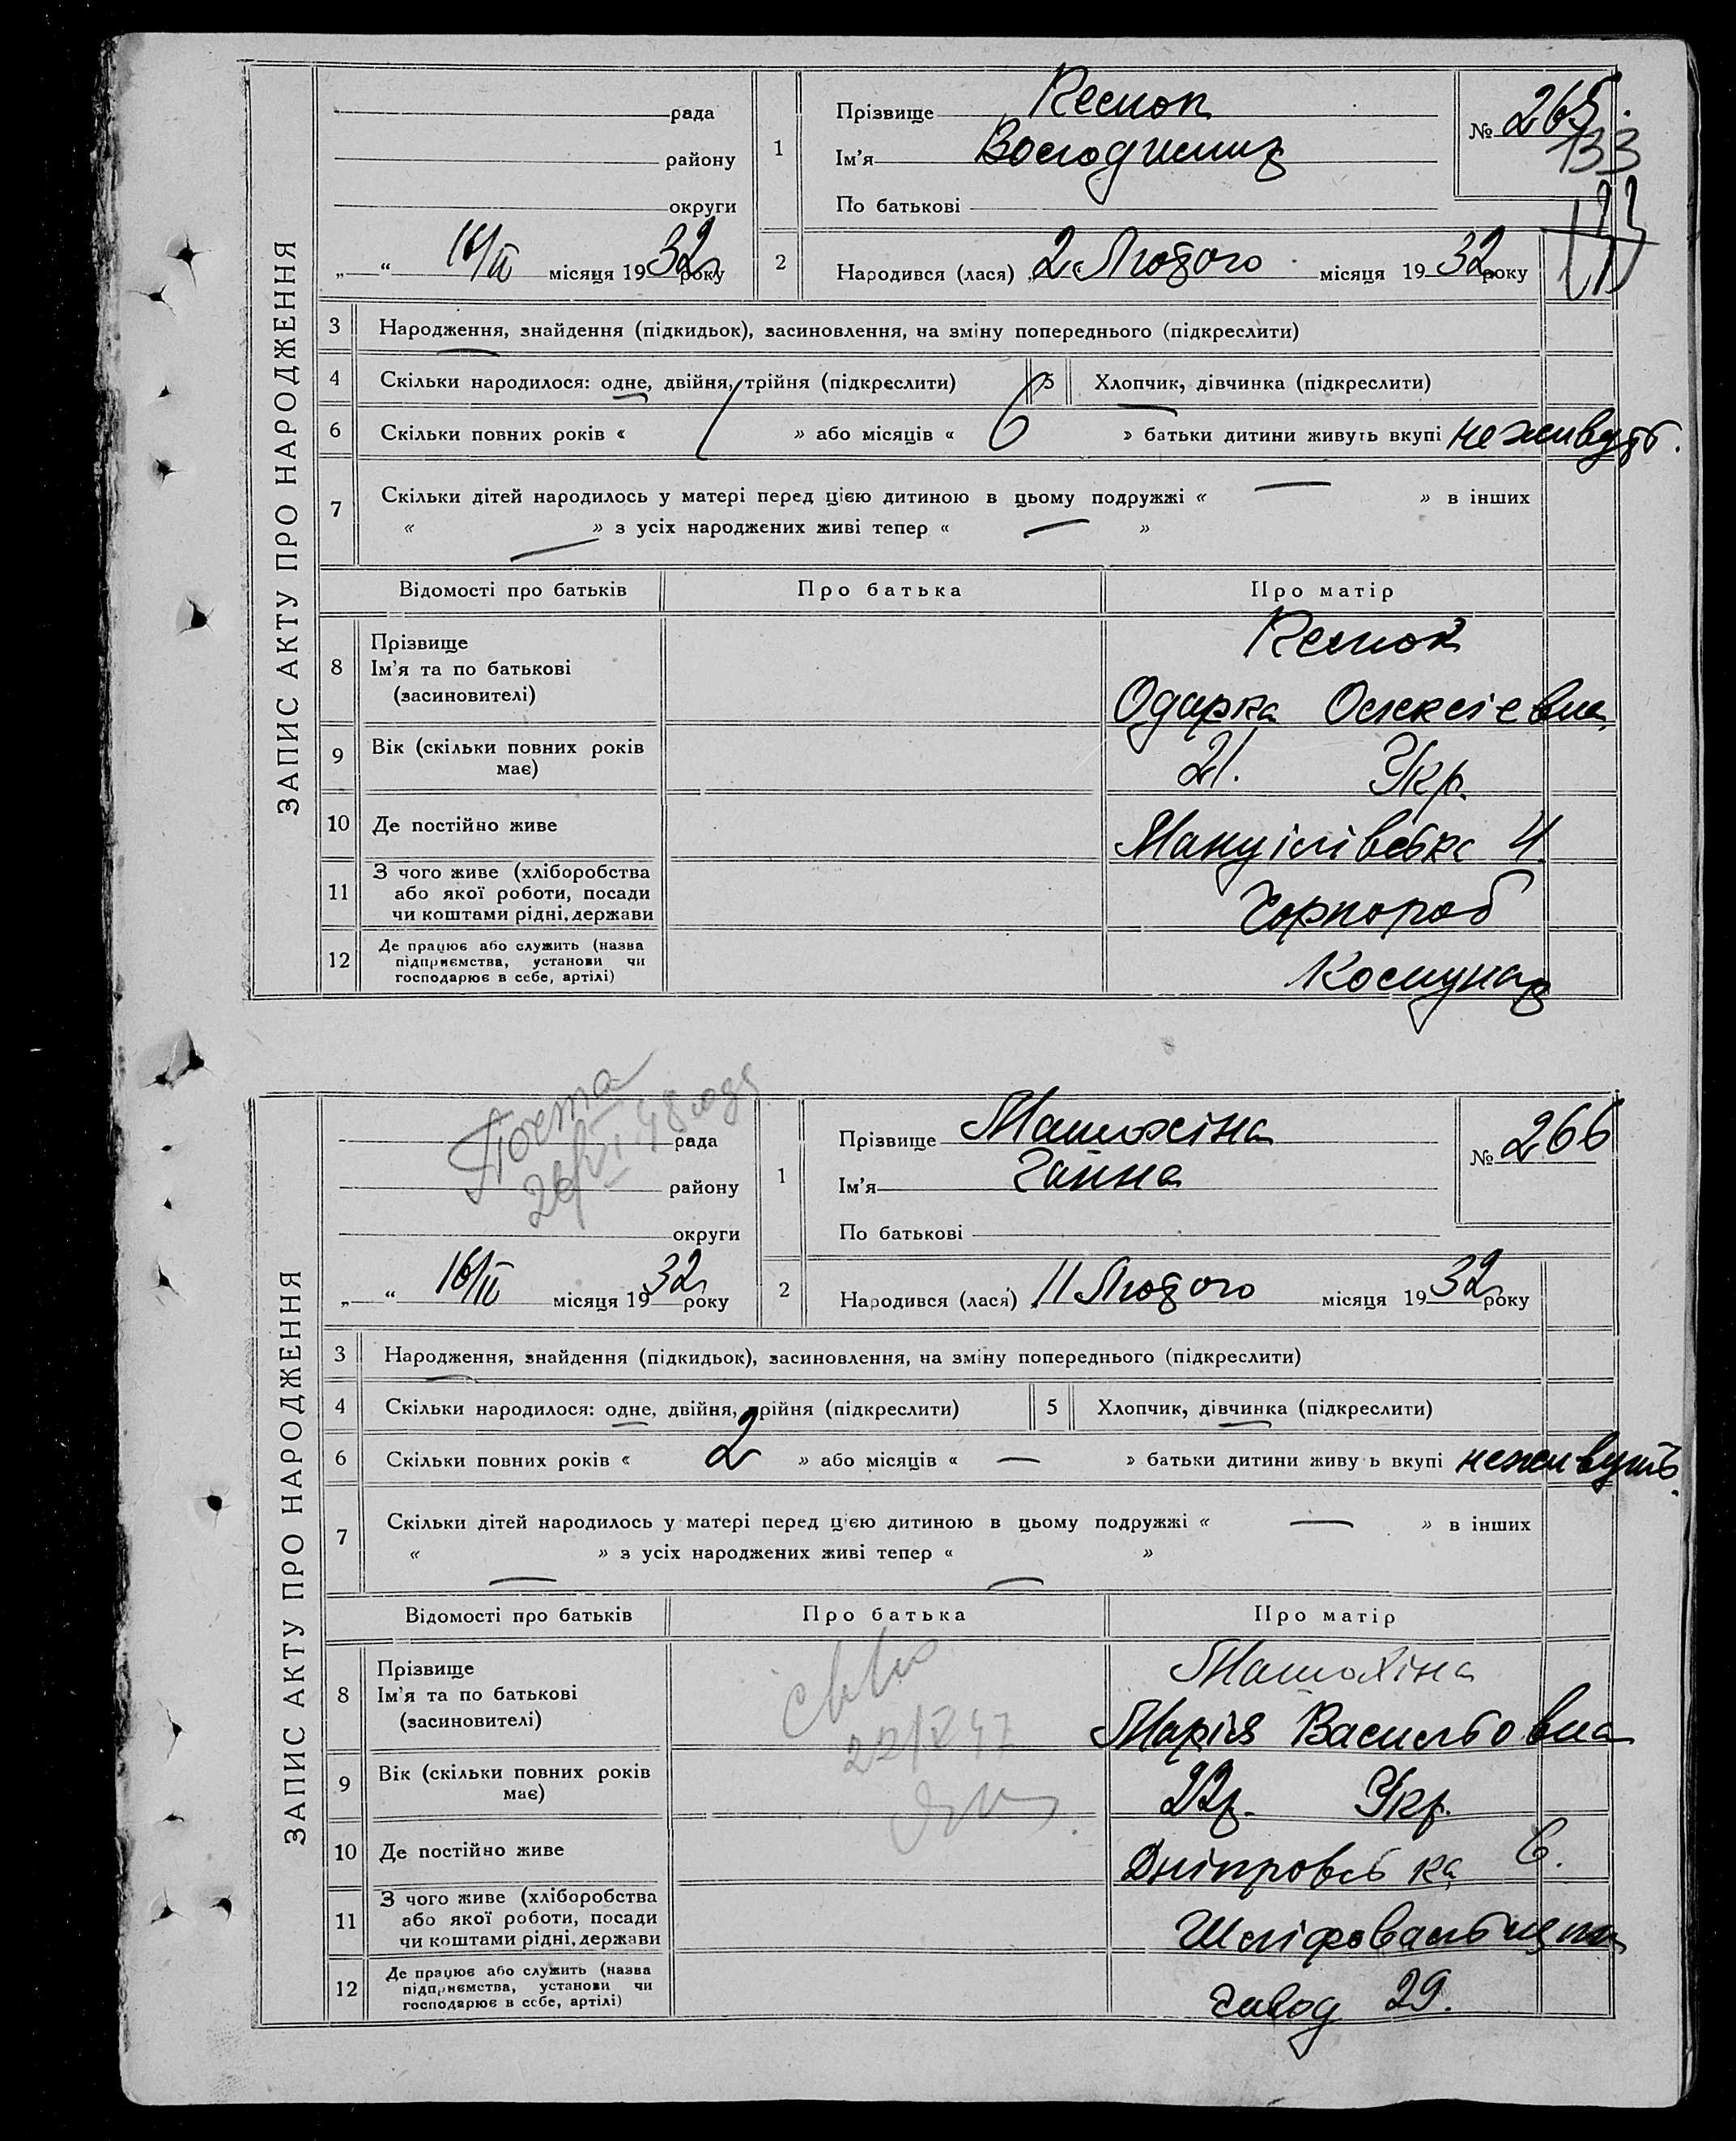 ЗАПИС АКТУ ПРО НАРОДЖЕННЯ
рада
району
округи
„ “ 16/II місяця 1932 року
1 Прізвище
Ім'я Володимир
По батькові
№ 265.
133
2 Народився (лася) „2 Лютого місяця 1932 року
3 Народження, знайдення (підкидьок), засиновлення, на зміну попереднього (підкреслити)
4 Скільки народилося: одне, двійня, трійня (підкреслити) 5 Хлопчик, дівчинка (підкреслити)
6 Скільки повних років « 1 » або місяців « 6 » батьки дитини живуть вкупі не живуть.
7 Скільки дітей народилось у матері перед цією дитиною в цьому подружжі « — » в інших
« — » з усіх народжених живі тепер « — »
Відомості про батьків Про батька Про матір
8 Прізвище
Ім'я та по батькові
(засиновителі)
Одарка Олексієвна
9 Вік (скільки повних років
має)
21. Укр.
10 Де постійно живе Мануілівська 4.
11 З чого живе (хліборобства
або якої роботи, посади
чи коштами рідні, держави
Чорнороб
12 Де працює або служить (назва
підприємства, установи чи
господарює в себе, артілі)
Комунар
ЗАПИС АКТУ ПРО НАРОДЖЕННЯ
рада
району
округи
„ “ 16/II місяця 1932 року
1 Прізвище Матюхіна
Ім'я Ганна
По батькові
№ 266
2 Народився (лася) 11 Лютого місяця 1932 року
3 Народження, знайдення (підкидьок), засиновлення, на зміну попереднього (підкреслити)
4 Скільки народилося: одне, двійня, трійня (підкреслити) 5 Хлопчик, дівчинка (підкреслити)
6 Скільки повних років « 2 » або місяців « — » батьки дитини живу ь вкупі не живуть.
7 Скільки дітей народилось у матері перед цією дитиною в цьому подружжі « — » в інших
« — » з усіх народжених живі тепер « — »
Відомості про батьків Про батька Про матір
8 Прізвище
Ім'я та по батькові
(засиновителі)
Матюхіна
Марія Васильовна
9 Вік (скільки повних років
має)
22р. Укр.
10 Де постійно живе Дніпровська 6.
11 З чого живе (хліборобства
або якої роботи, посади
чи коштами рідні, держави
12 Де працює або служить (назва
підприємства, установи чи
господарює в себе, артілі)
завод 29.